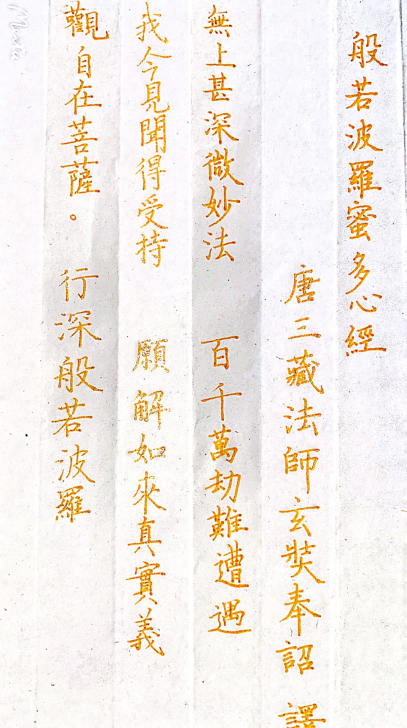 般若波羅蜜多心經
唐三藏法師玄奘奉詔 譯
無上甚深微妙法 百千萬劫難遭遇
我今見聞得受持 願解如來真實義
觀自在菩薩。 行深般若波羅